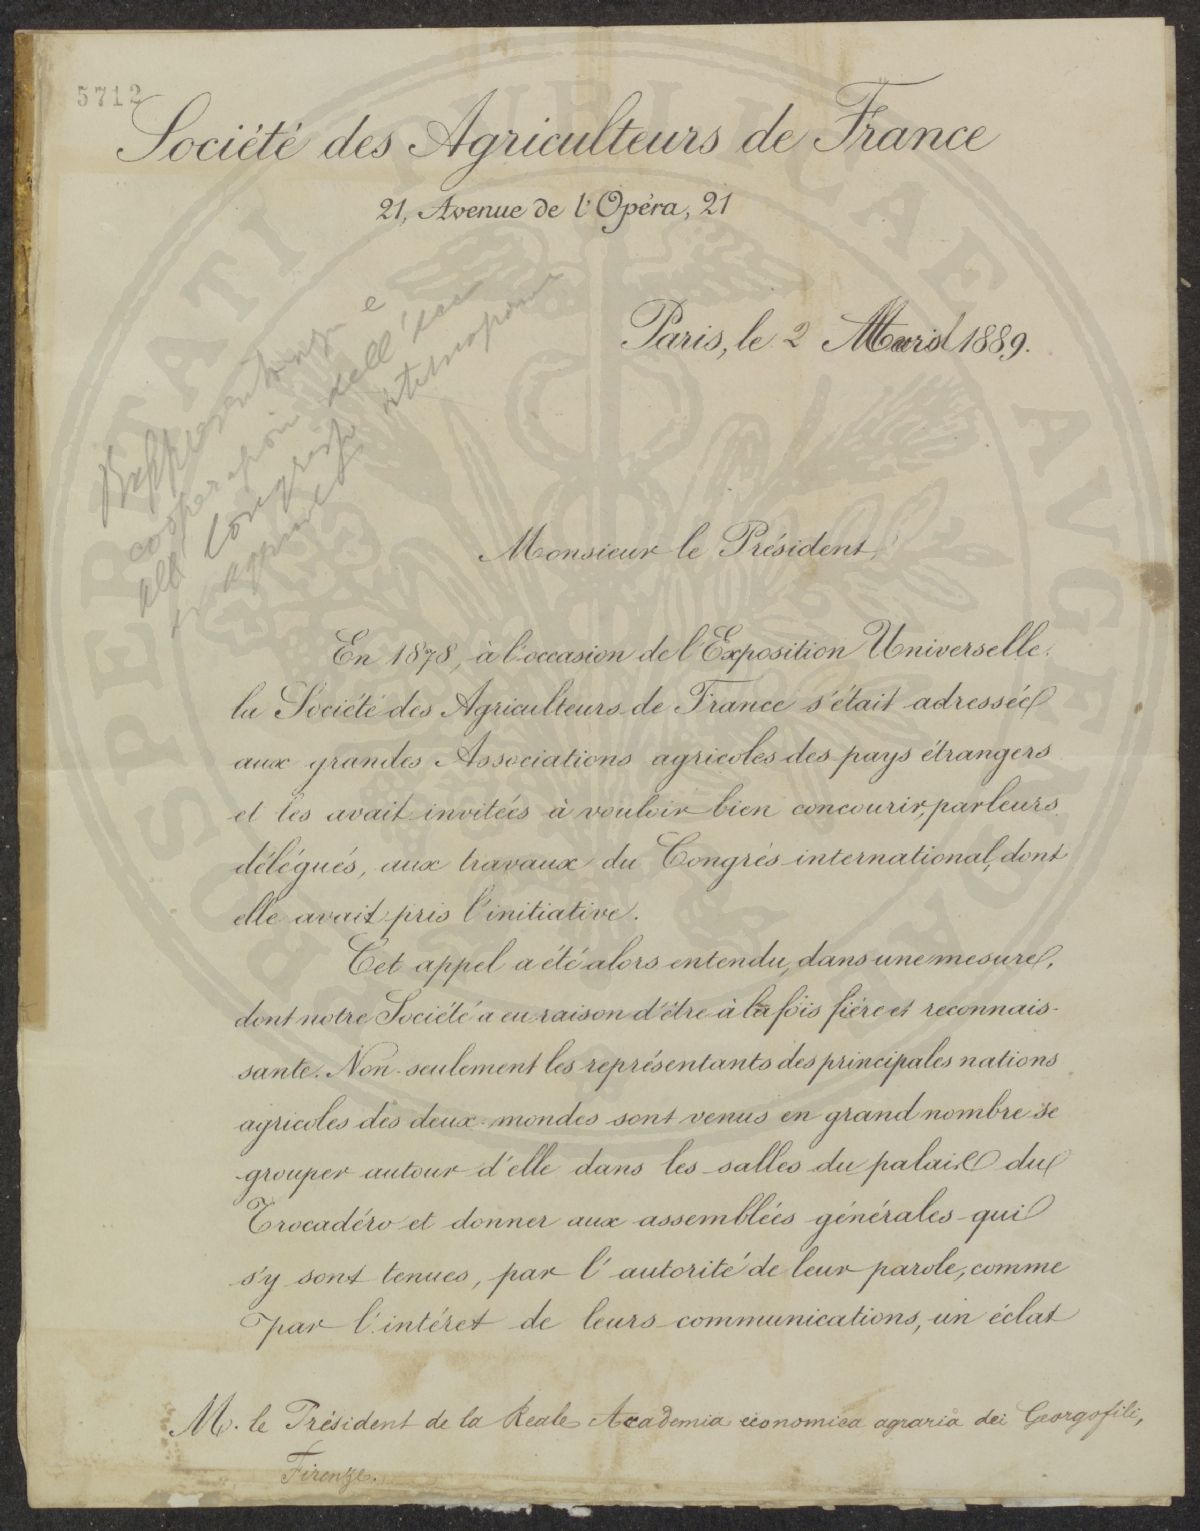 5712
Société des Agriculteurs de France
21, Avenue de l'Opéra, 21
Paris, le 2 1889.
e
cooperazioni dell'
all Congresso
Monsieur le Président,
En 1878, à l'occasion de l'Exposition Universelle,
la Société des Agriculteurs de France s'était adressée
aux grandes Associations agricoles des pays étrangers
et les avait invitées à vouloir bien concourir, par leurs
délégués, aux travaux du Congrès international, dont
elle avait pris l'initiative.
Cet appel a été alors entendu, dans une mesure,
dont notre Société a eu raison d'être à la fois fière et reconnais-
sante. Non-seulement les représentants des principales nations
agricoles des deux-mondes sont venus en grand nombre se
grouper autour d'elle dans les salles du palais du
Trocadéro et donner aux assemblées générales qui
s'y sont tenues, par l'autorité de leur parole, comme
par l'intéret de leurs communications, un éclat
M. le Président de la Reale Accademia economica agraria dei Georgofili,
Firenze.
PROSPERITATI PUBLICAE AVGENDAE